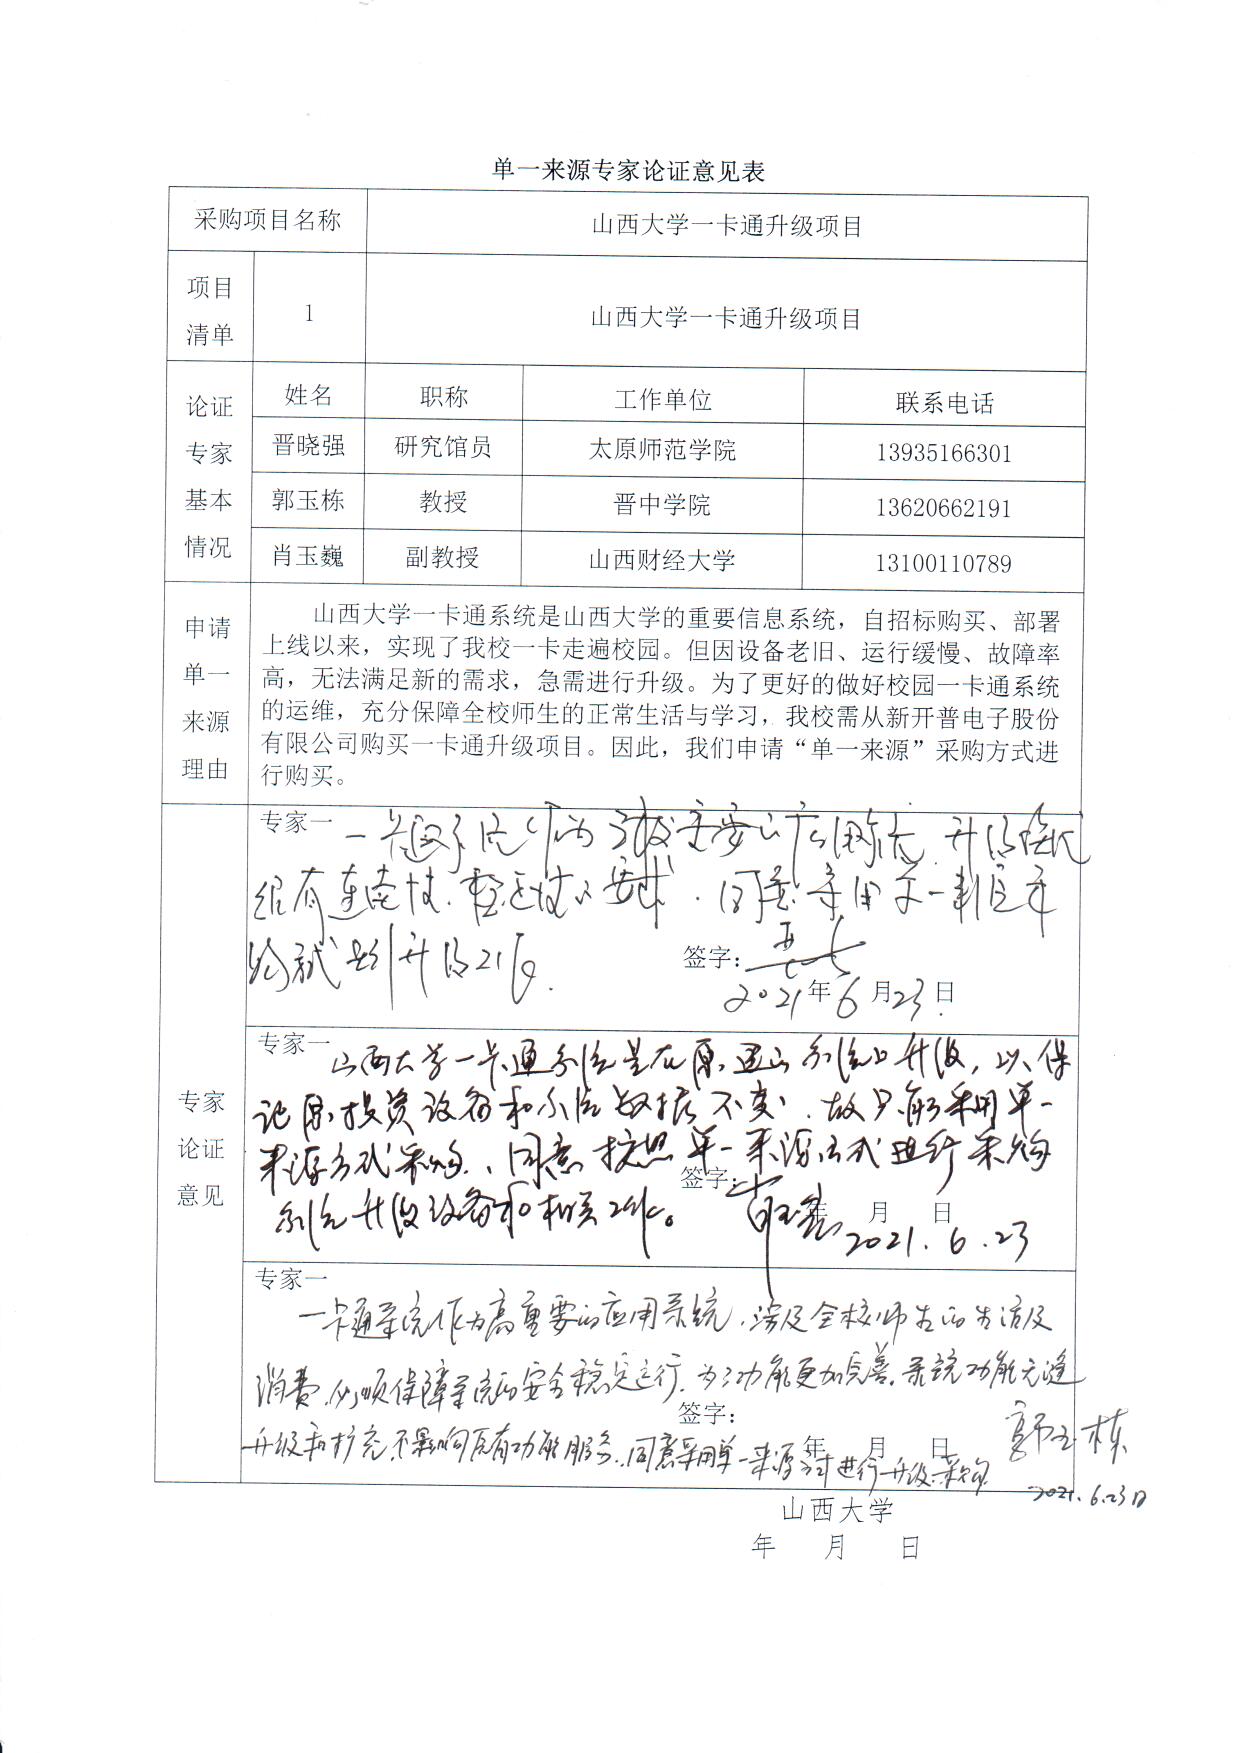 单一来源专家论证意见表
采购项目名称 山西大学一卡通升级项目
项目清单 1 山西大学一卡通升级项目
论证专家基本情况
姓名 职称 工作单位 联系电话
晋晓强 研究馆员 太原师范学院 13935166301
郭玉栋 教授 晋中学院 13620662191
肖玉巍 副教授 山西财经大学 13100110789
申请单一来源理由
山西大学一卡通系统是山西大学的重要信息系统，自招标购买、部署
上线以来，实现了我校一卡走遍校园。但因设备老旧、运行缓慢、故障率
高，无法满足新的需求，急需进行升级。为了更好的做好校园一卡通系统
的运维，充分保障全校师生的正常生活与学习，我校需从新开普电子股份
有限公司购买一卡通升级项目。因此，我们申请“单一来源”采购方式进
行购买。
专家论证意见
专家一 一卡通系统作为学校重要的应用系统，升级
有连续性、 性的要求，同意采用单一来源采
购 式进行升级
签字：
2021年6月23日
专家一 山西大学一卡通系统是在原 系统上升级，以保
证原投资设备和系统数据不变，故只能采用单一
来源方式采购，同意按照单一来源方式进行采购
系统升级设备和相关 。
签字：
年 月 日
2021.6.23
专家一
一卡通系统作为高重要的应用系统，涉及全校师生的生活及
消费，必须保障系统的安全稳定运行，为了功能更加完善，系统功能无缝
升级和扩充，不影响原有功能服务，同意采用单一来源方式进行升级采购
签字： 郭玉栋
年 月 日
2021.6.23日
山西大学
年 月 日